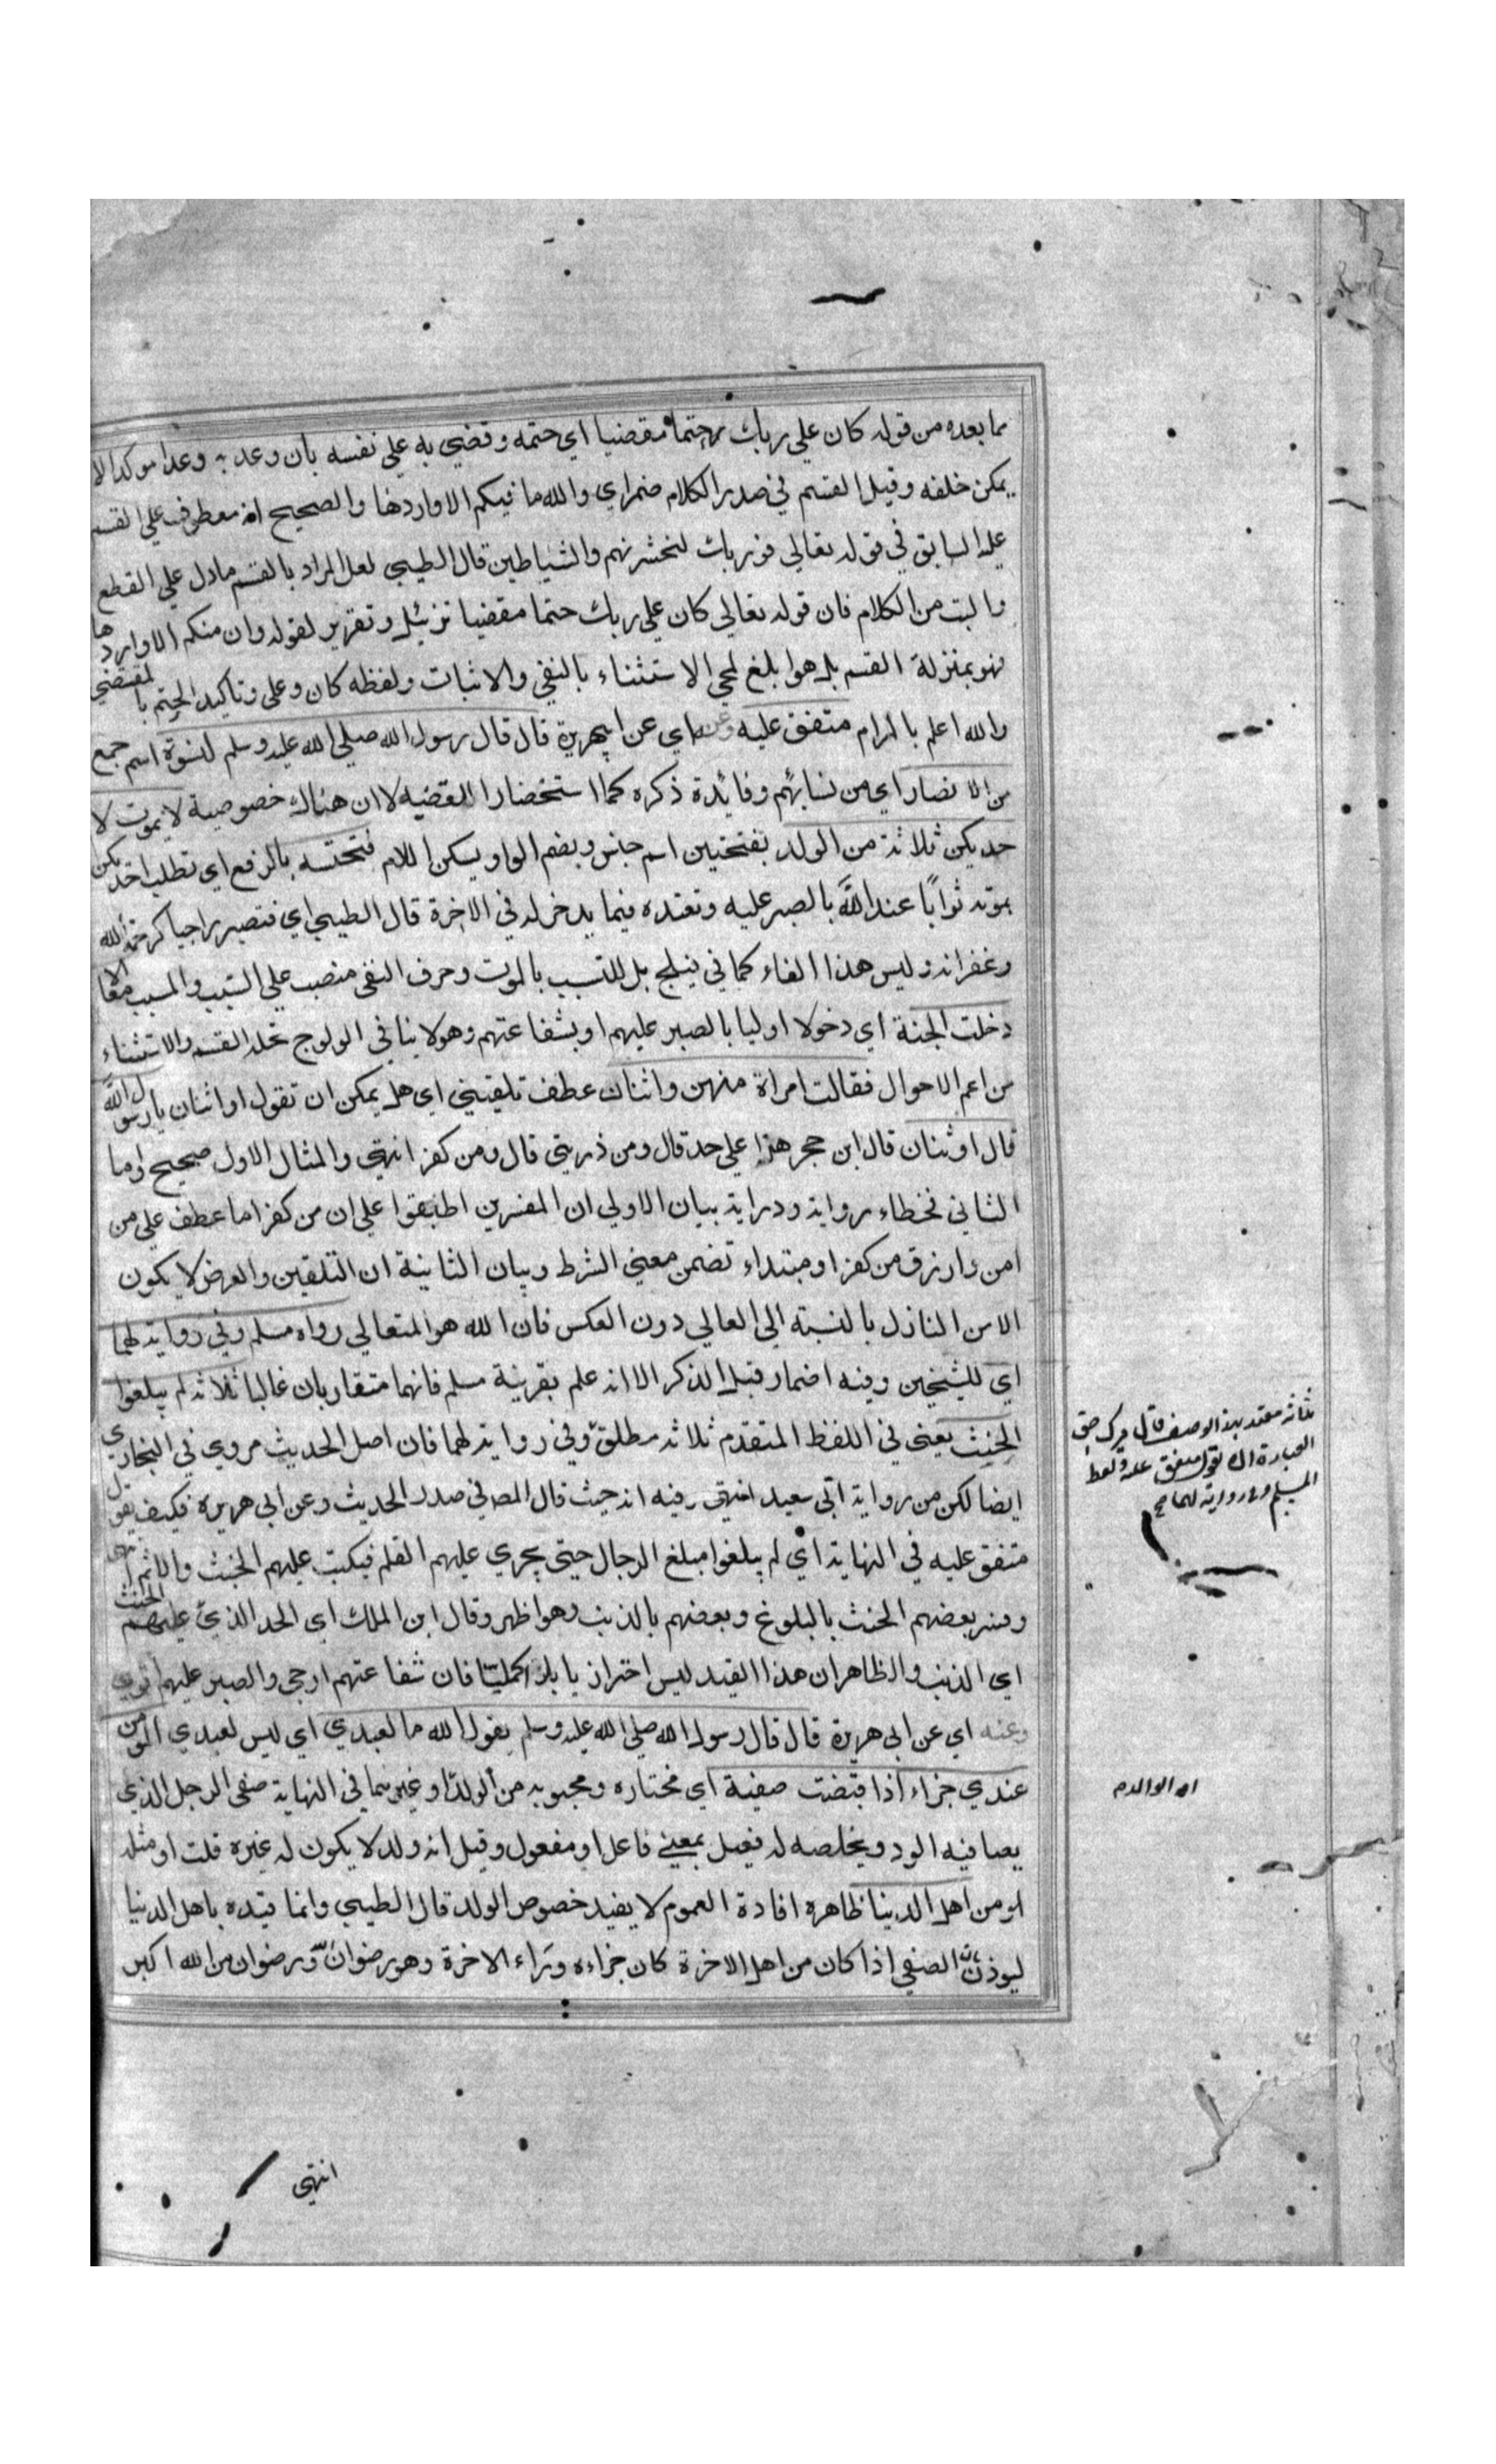 مما بعده من قوله كان على ربك حتما مقضيا اي حتمه وقضي به على نفسه بان وعد به وعدا موكدا لا
يمكن خلفه وقيل القسم في صدر الكلام مضمر اي والله ما فيكم الا واردها والصحيح انه معطوف على القسم
عليه السابق في قوله تعالى فوربك لنحشرنهم والشياطين قال الطيبي لعل المراد بالقسم ما دل على القطع
والبت من الكلام فان قوله تعالى كان على ربك حتما مقضيا تزئيل وتقرير لقوله وان منكم الا واردها
فهو بمنزلة القسم بل هو ابلغ لمجي الاستثناء بالنفي والاثبات ولفظه كان وعلى وتاكيد الحتم بالمقتضي
والله اعلم بالمرام متفق عليه وعنه اي عن ابي هريرة قال قال رسول الله صلى الله عليه وسلم لنسوة اسم جمع
من الانصار اي من نسائهم وفائدة ذكره كما استحضار القضيه لا ان هناك خصوصية لا يموت لا
حديكن ثلاثة من الولد بفتحتين اسم جنس وبضم الواو يسكن اللام فتحتسبه بالرفع اي تطلب احديكن
بموته ثوابًا عند الله بالصبر عليه وتعتده فيما يدخر له في الاخرة قال الطيبي اي فتصير راجيا كرحمة الله
وغفرانه وليس هذا الفاء كما في فيلج بل للتسبب بالموت وحرف النفي منصب على السبب والمسبب معًا الا
دخلت الجنة اي دخولا اوليا بالصبر عليهم او بشفاعتهم وهو لا ينافي الولوج تحله القسم والاستثناء
من اعم الاحوال فقالت امراة منهن واثنان عطف تلقيني اي هل يمكن ان تقول او اثنان يا رسول الله
قال او ثنان قال ابن حجر هذا على حد قال ومن ذريتي قال ومن كفر انتهى والمثال الاول صحيح واما
الثاني فخطاء رواية ودراية بيان الاولى ان المفسرين اطبقوا على ان من كفر اما عطف على من
امن وارزق من كفر او مبتداء تضمن معنى الشرط وبيان الثانية ان التلقين والعرض لا يكون
الا من النازل بالنسبة الى العالي دون العكس فان الله هو المتعالي رواه مسلم وفي رواية لهما
اي للشيخين وفيه اضمار قبل الذكر الا انه علم بقرينة مسلم فانهما متقاربان غالبا ثلاثة لم يبلغوا
الحنث يعني في اللفظ المتقدم ثلاثة مطلق وفي رواية لهما فان اصل الحديث مروي في البخاري
ايضا لكن من رواية ابي سعيد انتهى وفيه انه حيث قال المص في صدر الحديث وعن ابي هريرة فكيف يقول
متفق عليه في النهاية اي لم يبلغوا مبلغ الرجال حتى يجري عليهم القلم فيكتب عليهم الحنث والاثم انتهى
وفسر بعضهم الحنث بالبلوغ وبعضهم بالذنب وهو اظهر وقال ابن الملك اي الحد الذي عليهم الحنث
اي الذنب والظاهر ان هذا القيد ليس احترازيا بل اكمليا فان شفاعتهم ارجى والصبر عليهم اقوي
وعنه اي عن ابي هريرة قال قال رسول الله صلى الله عليه وسلم يقول الله ما لعبدي اي ليس لعبدي المومن
عندي جزاء اذا قبضت صفية اي مختاره ومحبوبه من الولد او غيرهما في النهاية صفي الرجل الذي
يصافيه الود ويخلصه له فعيل بمعنى فاعل او مفعول وقيل انه ولد لا يكون له غيره قلت او مثله
له من اهل الدنيا ظاهره افادة العموم لا يفيد خصوص الولد قال الطيبي وانما قيده باهل الدنيا
ليوذن الصفي اذا كان من اهل الاخرة كان جزاءه وراء الاخرة وهو رضوان ورضوان من الله اكبر
ثلثة مقيد بهذا الوصف قال ميرك حق
العبارة ان يقول متفق عليه ولفظ
المسلم وفي رواية
او الوالدة
انتهى